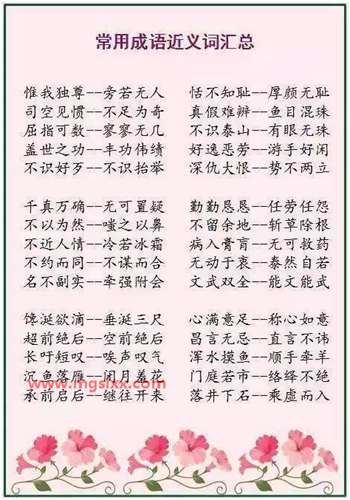 常用成语近义词汇总
惟我独尊--旁若无人 恬不知耻--厚颜无耻
司空见惯--不足为奇 真假难辨--鱼目混珠
屈指可数--寥寥无几 不识泰山--有眼无珠
盖世之功--丰功伟绩 好逸恶劳--游手好闲
不识好歹--不识抬举 深仇大恨--势不两立
千真万确--无可置疑 勤勤恳恳--任劳任怨
不以为然--嗤之以鼻 不留余地--斩草除根
不近人情--冷若冰霜 病入膏肓--无可救药
不约而同--不谋而合 无动于衷--泰然自若
名不副实--牵强附会 文武双全--能文能武
馋涎欲滴--垂涎三尺 心满意足--称心如意
超前绝后--空前绝后 昌言无忌--直言不讳
长吁短叹--唉声叹气 浑水摸鱼--顺手牵羊
沉鱼落雁--闭月羞花 门庭若市--络绎不绝
www.mgsixx.com
承前启后--继往开来 落井下石--乘虚而入